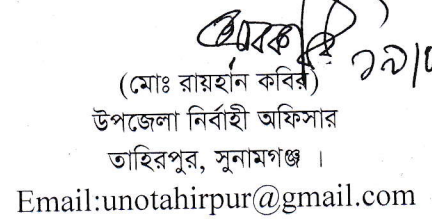 (মোঃ রায়হান কবির)
উপজেলা নির্বাহী অফিসার
তাহিরপুর, সুনামগঞ্জ ।
Email:unotahirpur@gmail.com